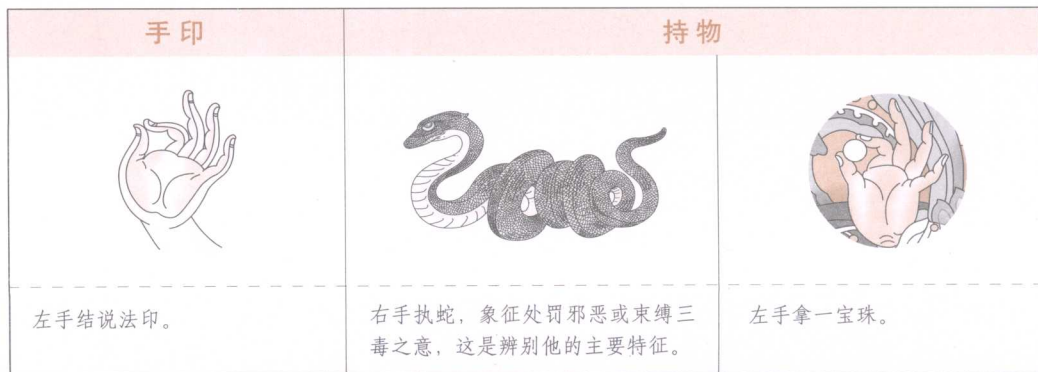 手印
持物
左手结说法印。
右手执蛇，象征处罚邪恶或束缚三
毒之意，这是辨别他的主要特征。
左手拿一宝珠。